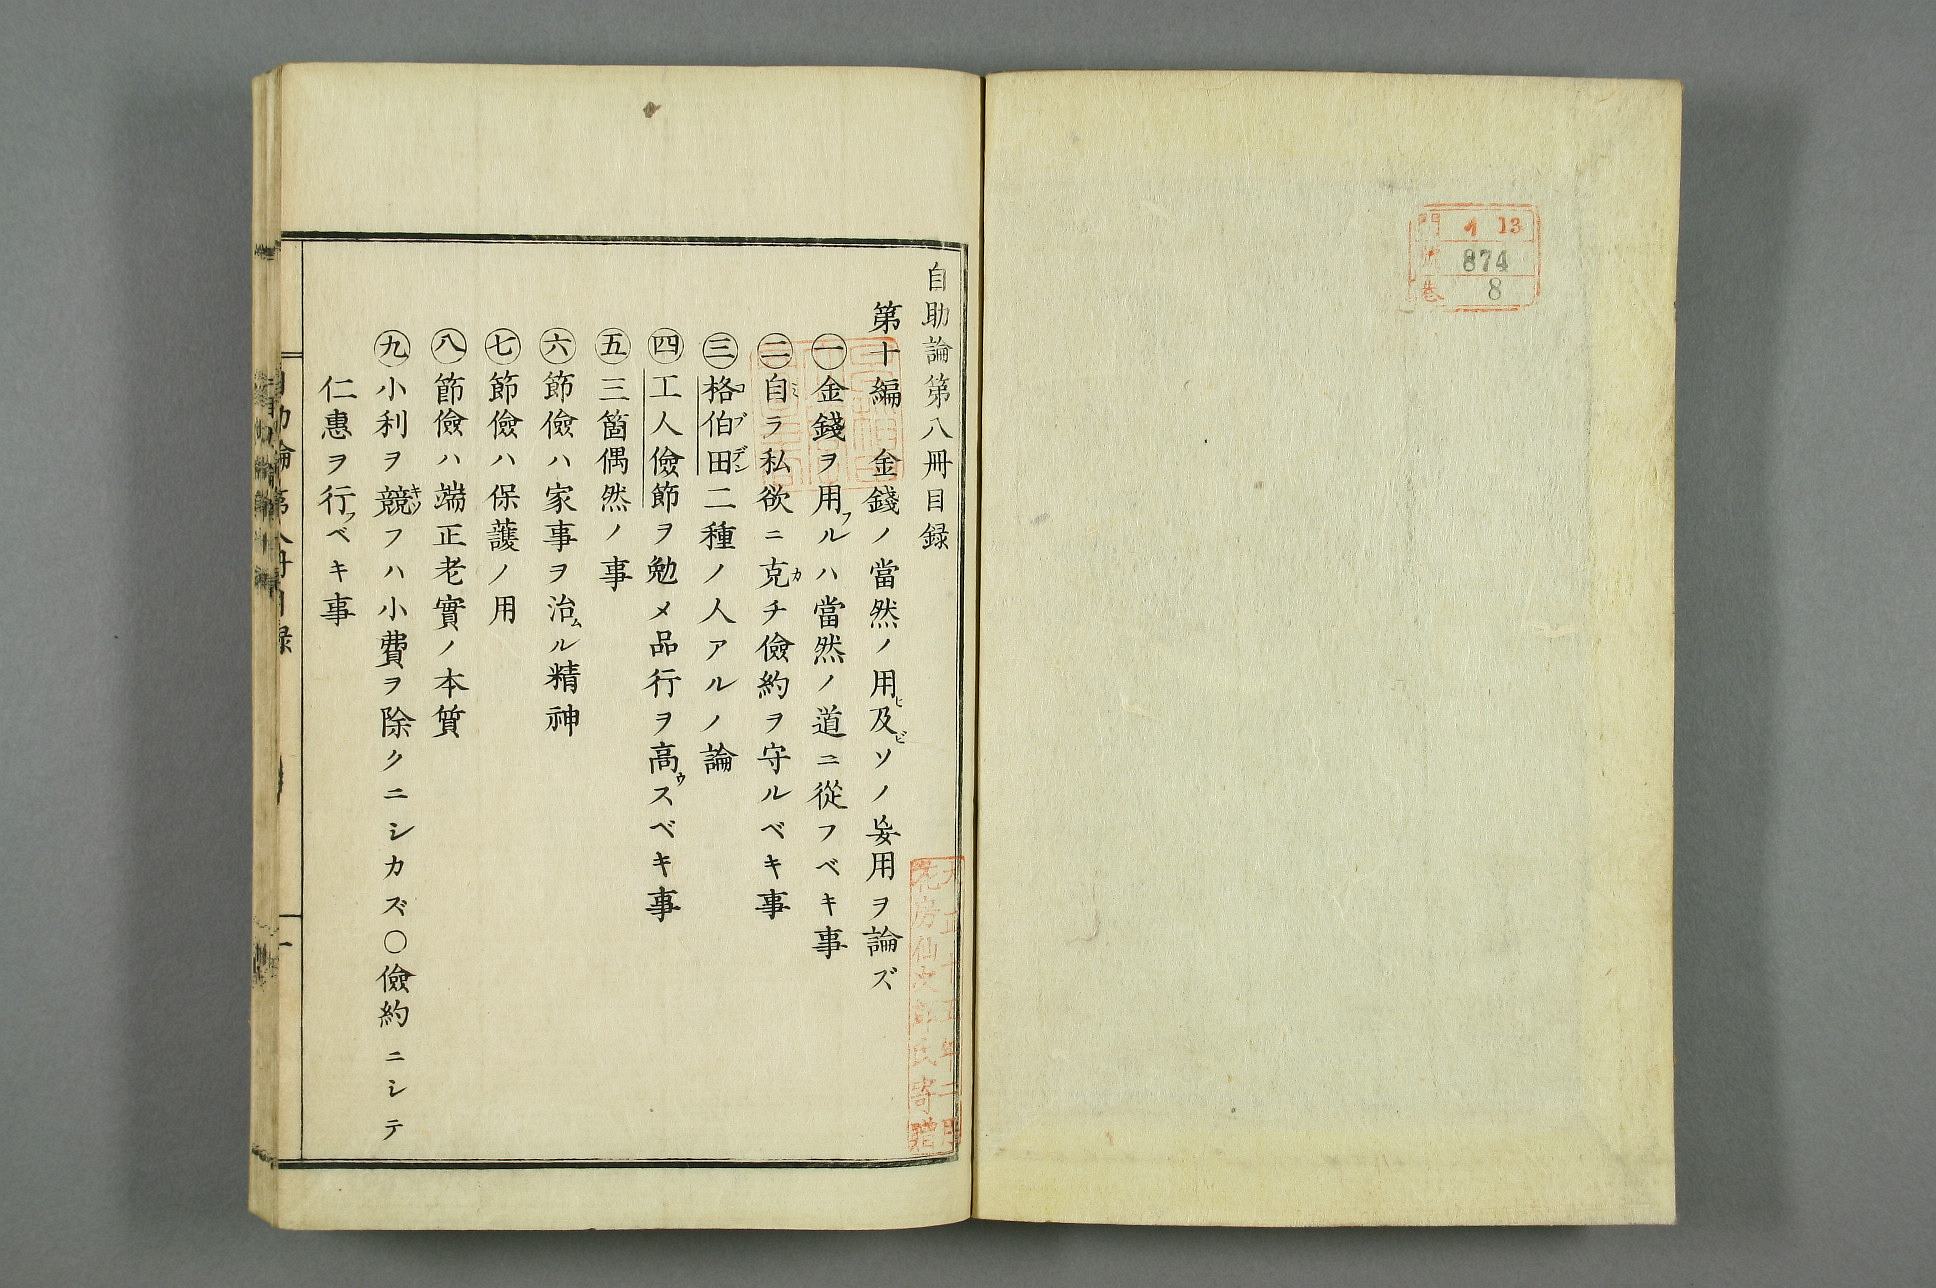 門 イ 13
號 874
巻 8
自助論第八冊目録
第十編 金錢ノ當然ノ用ヒ及ビソノ妄用ヲ論ズ
㊀金錢ヲ用フルハ當然ノ道ニ從フベキ事
㊁自ミラ私欲ニ克カチ儉約ヲ守ルベキ事
㊂格コ伯ブ田デン二種ノ人アルノ論
㊃工人儉節ヲ勉メ品行ヲ高ウスベキ事
㊄三箇偶然ノ事
㊅節儉ハ家事ヲ治ムル精神
㊆節儉ハ保護ノ用
㊇節儉ハ端正老實ノ本質
㊈小利ヲ競キソフハ小費ヲ除クニシカズ〇儉約ニシテ
仁惠ヲ行フベキ事
大正十五年二月
花房仙次郎氏寄贈
自助論第八冊目録
一